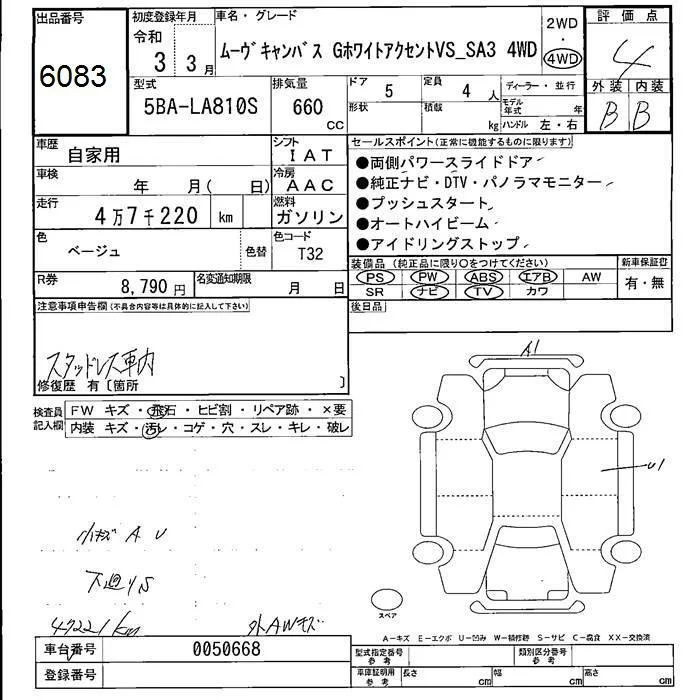 出品番号
6083
初度登録年月
令和
3 3月
車名・グレード
ムーヴキャンバス GホワイトアクセントVS_SA3 4WD
2WD
・
4WD
評価点
4
外装 内装
B B
型式
5BA-LA810S
排気量
660
CC
ドア
5
定員
4 人
形状
積載
kg
ディーラー・並行
モデル年式 年
ハンドル 左・右
車歴
自家用
シフト
IAT
車検
年 月( 日)
冷房
AAC
走行
4万7千220 km
燃料
ガソリン
色
ベージュ
色替
色コード
T32
R券
8,790円
名変通知期限
月 日
セールスポイント(正常に機能するものに限ります)
●両側パワースライドドア
●純正ナビ・DTV・パノラマモニター
●プッシュスタート
●オートハイビーム
●アイドリングストップ
装備品(純正品に限り○をつけてください)
PS PW ABS エアB AW
SR ナビ TV カワ
新車保証書
有・無
後日品
注意事項申告欄(不具合内容等は具体的に記入して下さい)
スタッドレス車内
修復歴 有〔箇所 〕
検査員
記入欄
FW キズ・飛石・ヒビ割・リペア跡・×要
内装 キズ・汚レ・コゲ・穴・スレ・キレ・破レ
A1
U1
小キズ A U
下廻りS
47221km
外AWキズ
スペア
A-キズ E-エクボ U-凹み W-補修跡 S-サビ C-腐食 XX-交換済
車台番号
0050668
登録番号
型式指定番号
参考
類別区分番号
参考
車庫証明用
参考
長さ cm
幅 cm
高さ cm